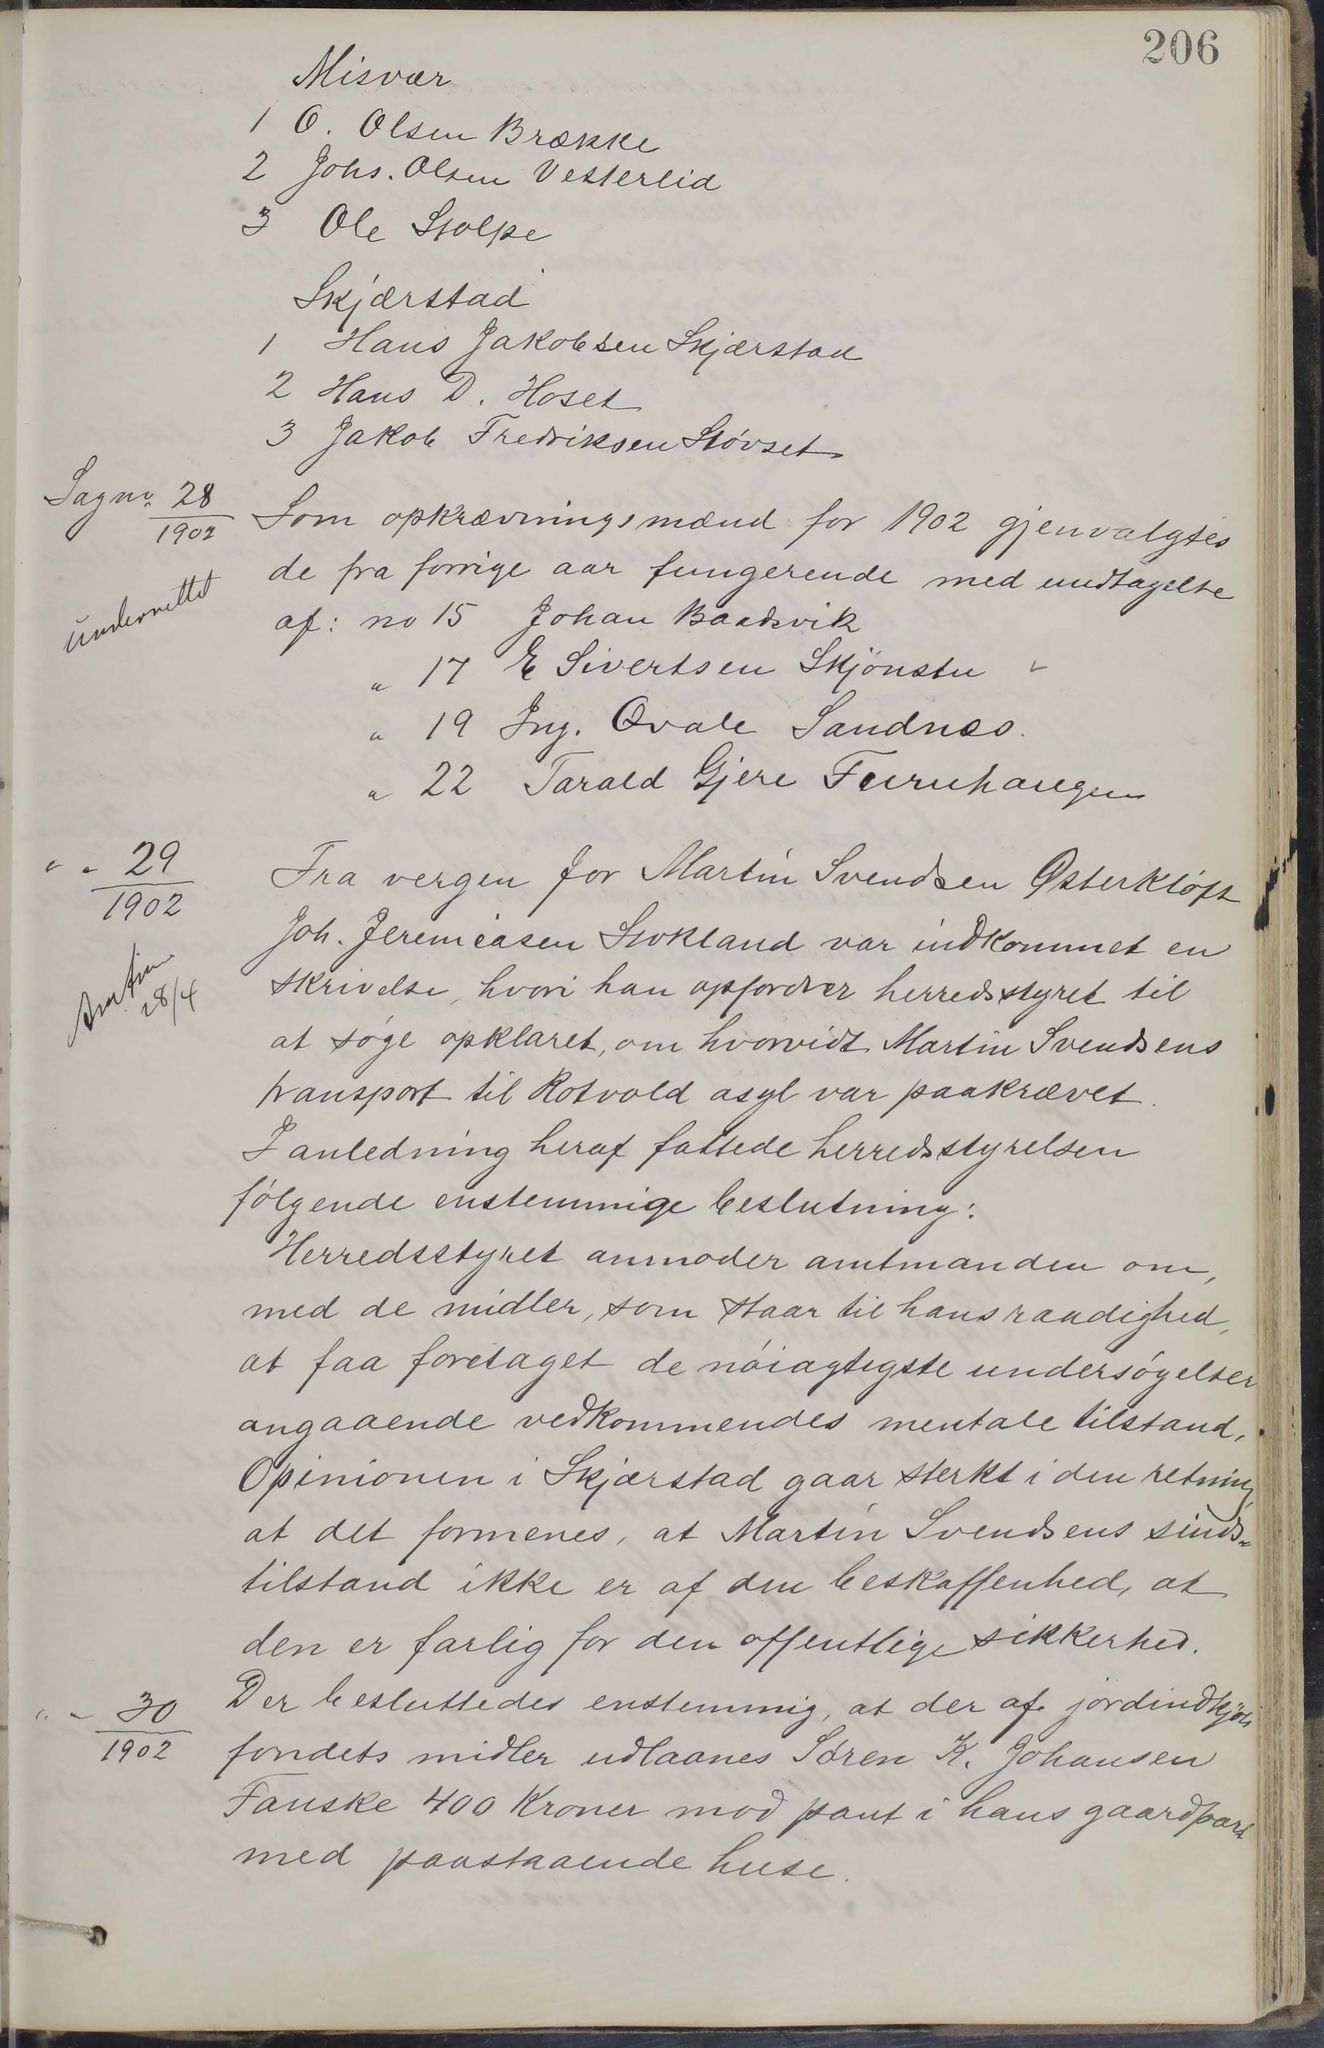 206
Misvær
1 O. Olsen Brække
2 Johs. Olsen Vesterlid
3 Ole Stolpe
Skjærstad
1 Hans Jakobsen Skjærstad
2 Hans D. Hoset
3 Jakob Fredriksen Støvset
Sagno. 28
1902
Som opkrævningsmænd for 1902 gjenvalgtes
de fra forrige aar fungerende med undtagelse
underrettet
af: no 15 Johan Baadsvik
" 17 E Sivertsen Skjönstu
" 19 Ing. Qvale Sandnes.
" 22 Tarald Gjere Furuhaugen
" " 29
1902
Fra vergen for Martin Svendsen Østerkløft
Joh. Jeremiasen Stokland var indkommet en
28/4
skrivelse, hvori han opfordrer herredsstyret til
at søge opklaret, om hvorvidt Martin Svendsens
transport til Rotvold asyl var paakrævet.
I anledning heraf fattede herredsstyrelsen
følgende enstemmige beslutning:
Herredsstyret anmoder amtmanden om,
med de midler, som staar til hans raadighed,
at faa foretaget de nöiagtigste undersøgelser
angaaende vedkommendes mentale tilstand.
Opinionen i Skjærstad gaar sterkt i den retning,
at det formenes, at Martin Svendsens sinds-
tilstand ikke er af den beskaffenhed, at
den er farlig for den offentlige sikkerhed.
" " 30
1902
Der besluttedes enstemmig, at der af jordindkjøbs
fondets midler udlaanes Søren K. Johansen
Fauske 400 Kroner mod pant i hans gaardpart
med paastaaende huse.